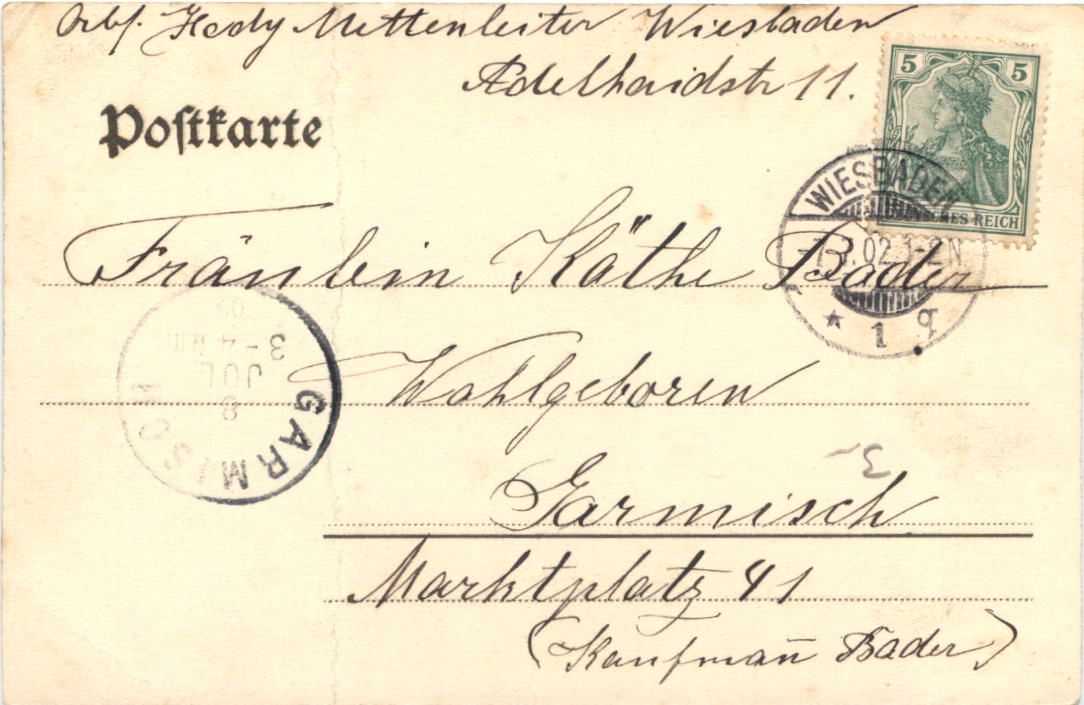 Abs. Hedy Mettenleiter Wiesbaden
Adelhaidstr 11.
Postkarte
5 5
DEUTSCHES REICH
WIESBADEN
7.02.1-2N
* 1 g
Fräulein Käthe Bader
GARMISCH
8
JUL
3-4 Nm
02
Wohlgeboren
3-
Garmisch
Marktplatz 41
(Kaufmañ Bader)